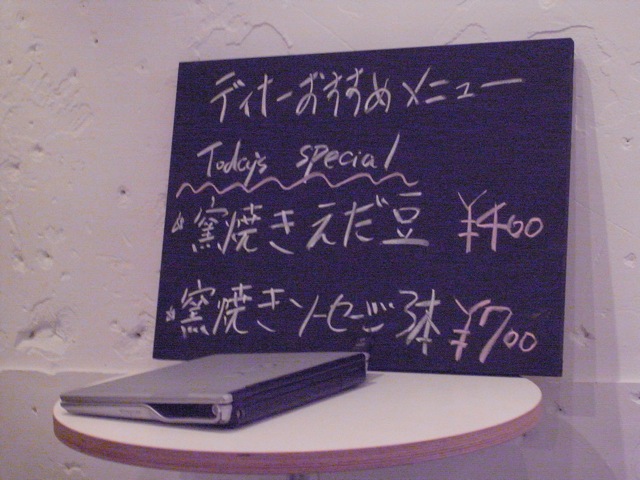 ディオーおすすめメニュー
Today's special
☆窯焼きえだ豆 ¥400
☆窯焼きソーセージ3本 ¥700